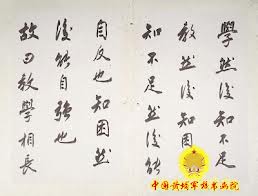 學然後知不足
教然後知困
知不足然後能
自反也知困然
後能自強也
故曰教學相長
中国黄埔军校书画院